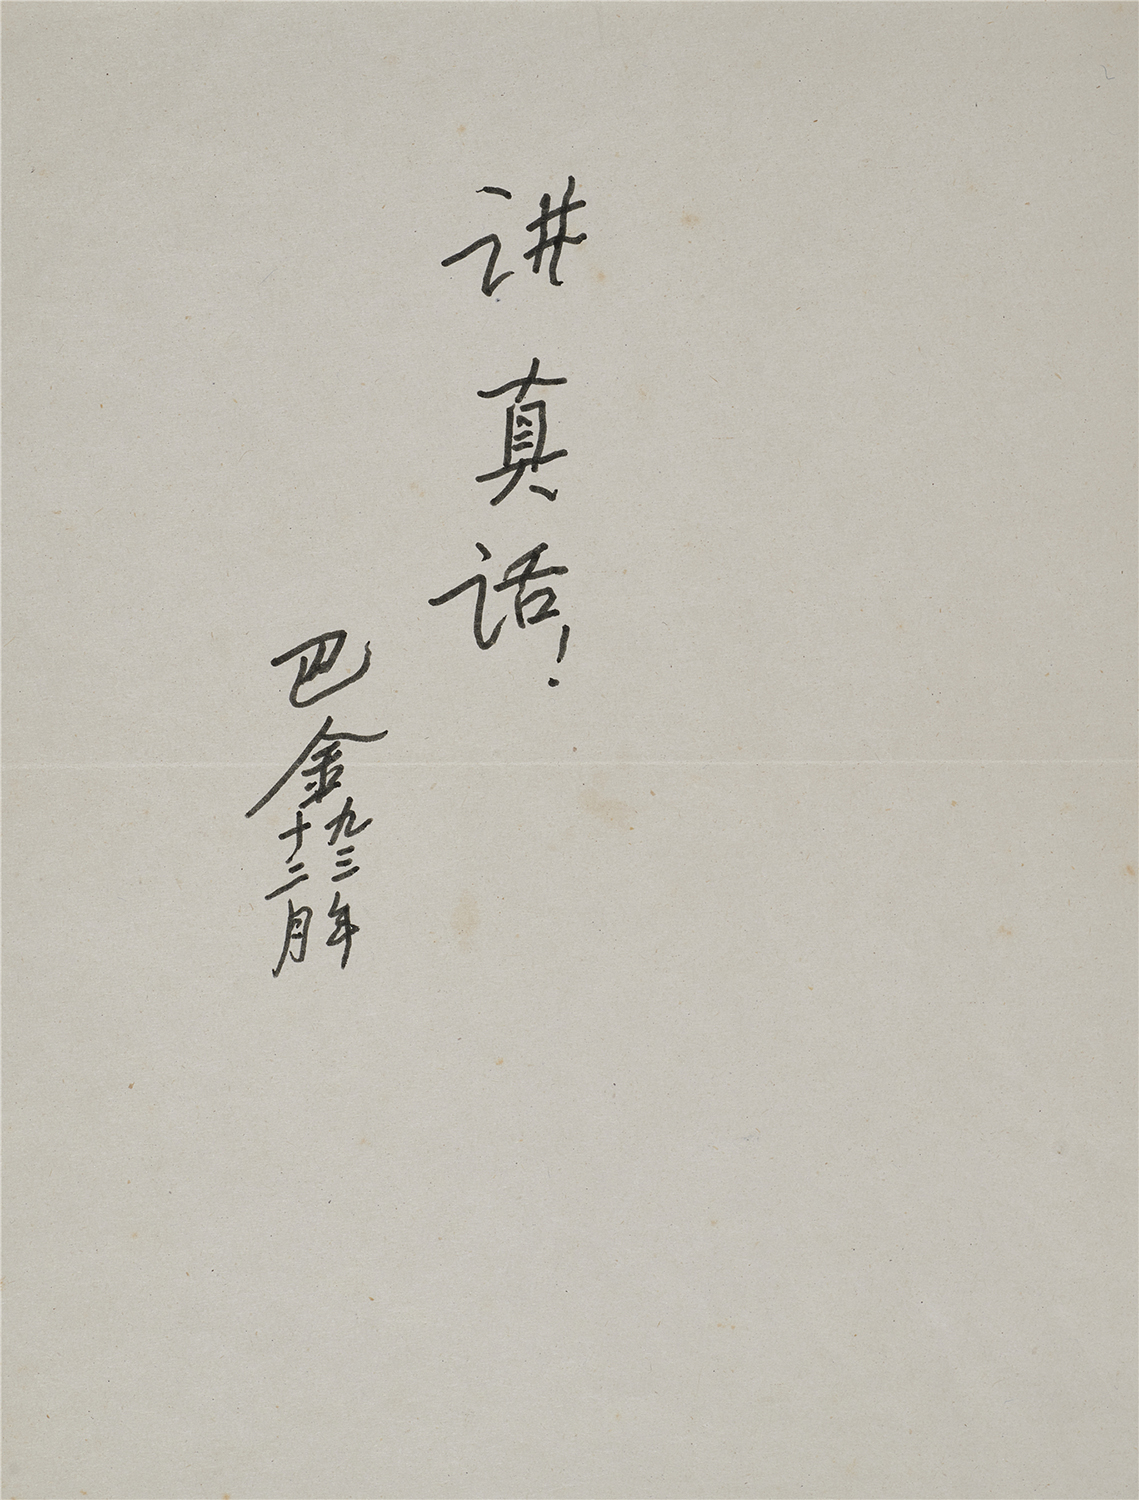 讲真话!
巴金
九三年
十二月